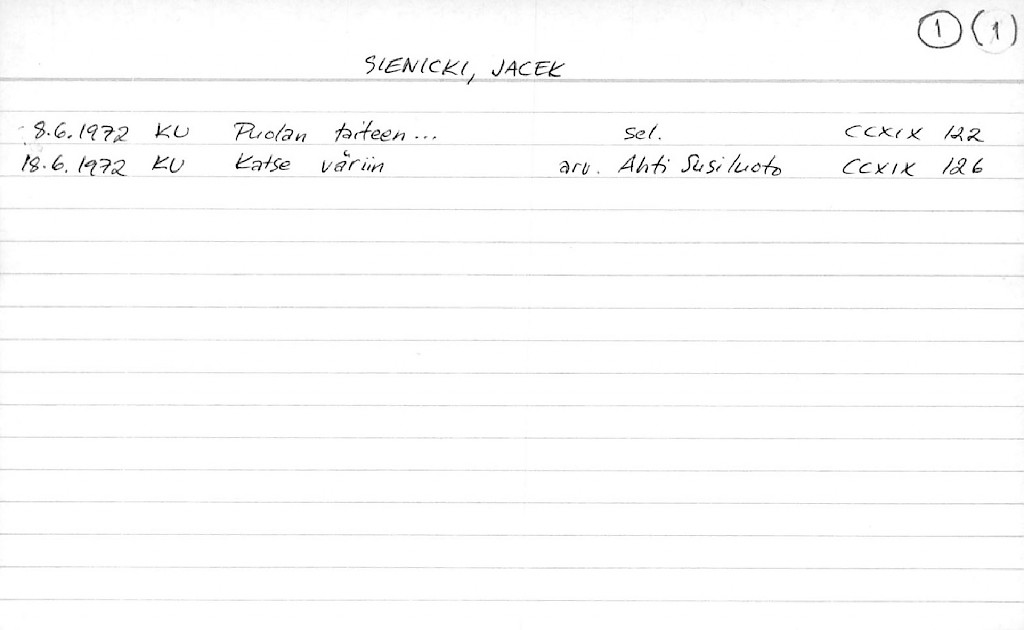 1 (1)
SIENICKI, JACEK
8.6.1972 KU Puolan taiteen... sel. CCXIX 122
18.6.1972 KU Katse väriin arv. Ahti Susiluoto CCXIX 126